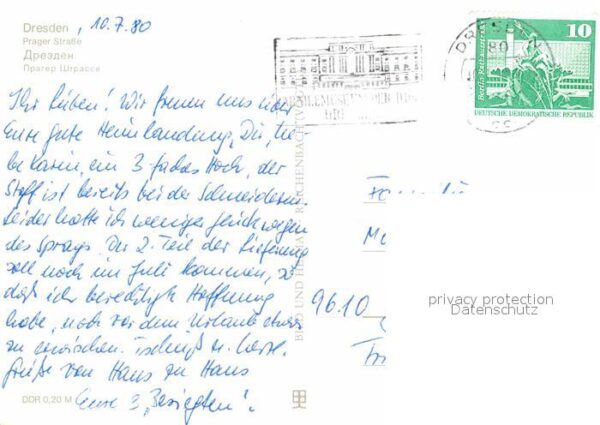 Dresden , 10.7.80
Prager Straße
Дрезден
Прагер Штрассе
Ihr Lieben! Wir freuen uns über
Eure gute Heimlandung, Dir, lie-
be Karin, ein 3-faches Hoch, der
Stoff ist bereits bei der Schneiderin.
Leider hatte ich weniger Glück wegen
des Sprays. Der 2. Teil der Lieferung
soll noch im Juli kommen, so
daß ich berechtigte Hoffnung
habe, noch vor dem Urlaub etwas
zu erwischen. Tschüß u. herzl.
Grüße von Haus zu Haus
Eure 3 „Besiegten".
DDR 0,20 M
BILD UND HEIMAT REICHENBACH (V
DRESDEN
80
10
Berlin-Rathausstraße
DEUTSCHE DEMOKRATISCHE REPUBLIK
96.10
privacy protection
Datenschutz